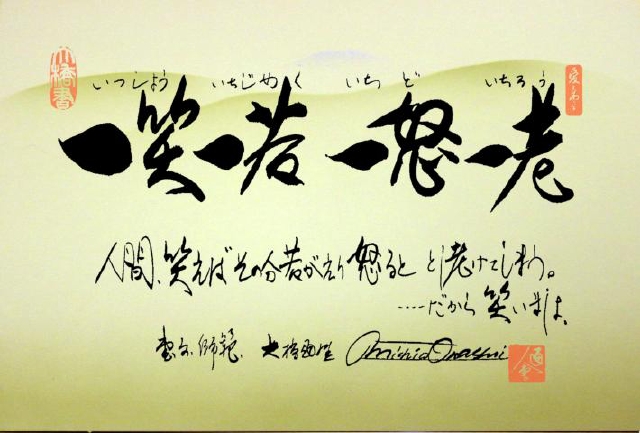 いっしょう いちじゃく いちど いちろう
一笑一若一怒一老
人間、笑えばその分若がえり 怒ると とし老けてしまう。
……だから笑いましょ。
書家.師範. 大橋